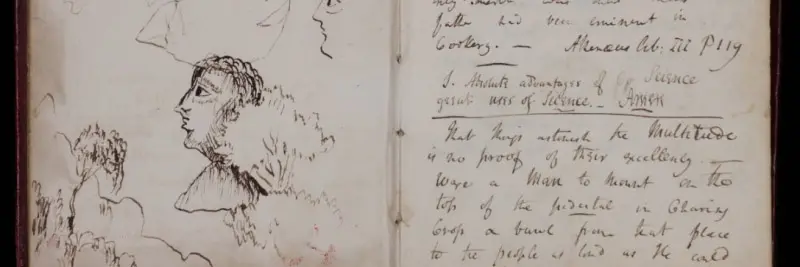 father had been eminent in
Cookery. — Athenæus Lib: III P 119
J. Absolute advantages of Science
great uses of Science. — Amen
That things astonish the Multitude
is no proof of their excellency. —
were a Man to mount on the
top of the pedestal in Charing
Crop a bawl from that place
to the people as loud as He could